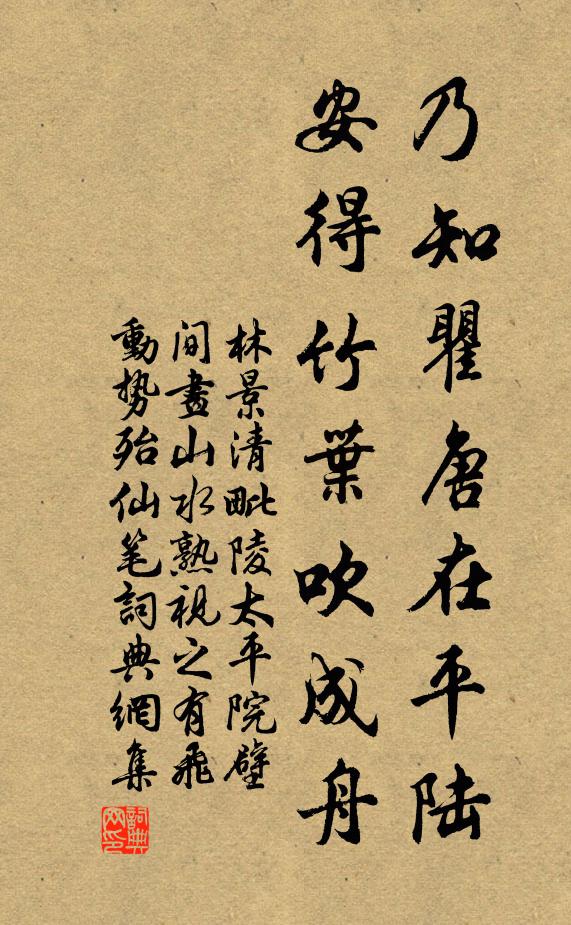 乃知瞿唐在平陆
安得竹葉吹成舟
林景清毗陵太平院壁
間畫山水熟視之有飛
動势殆仙笔詞典網集
詞典网印